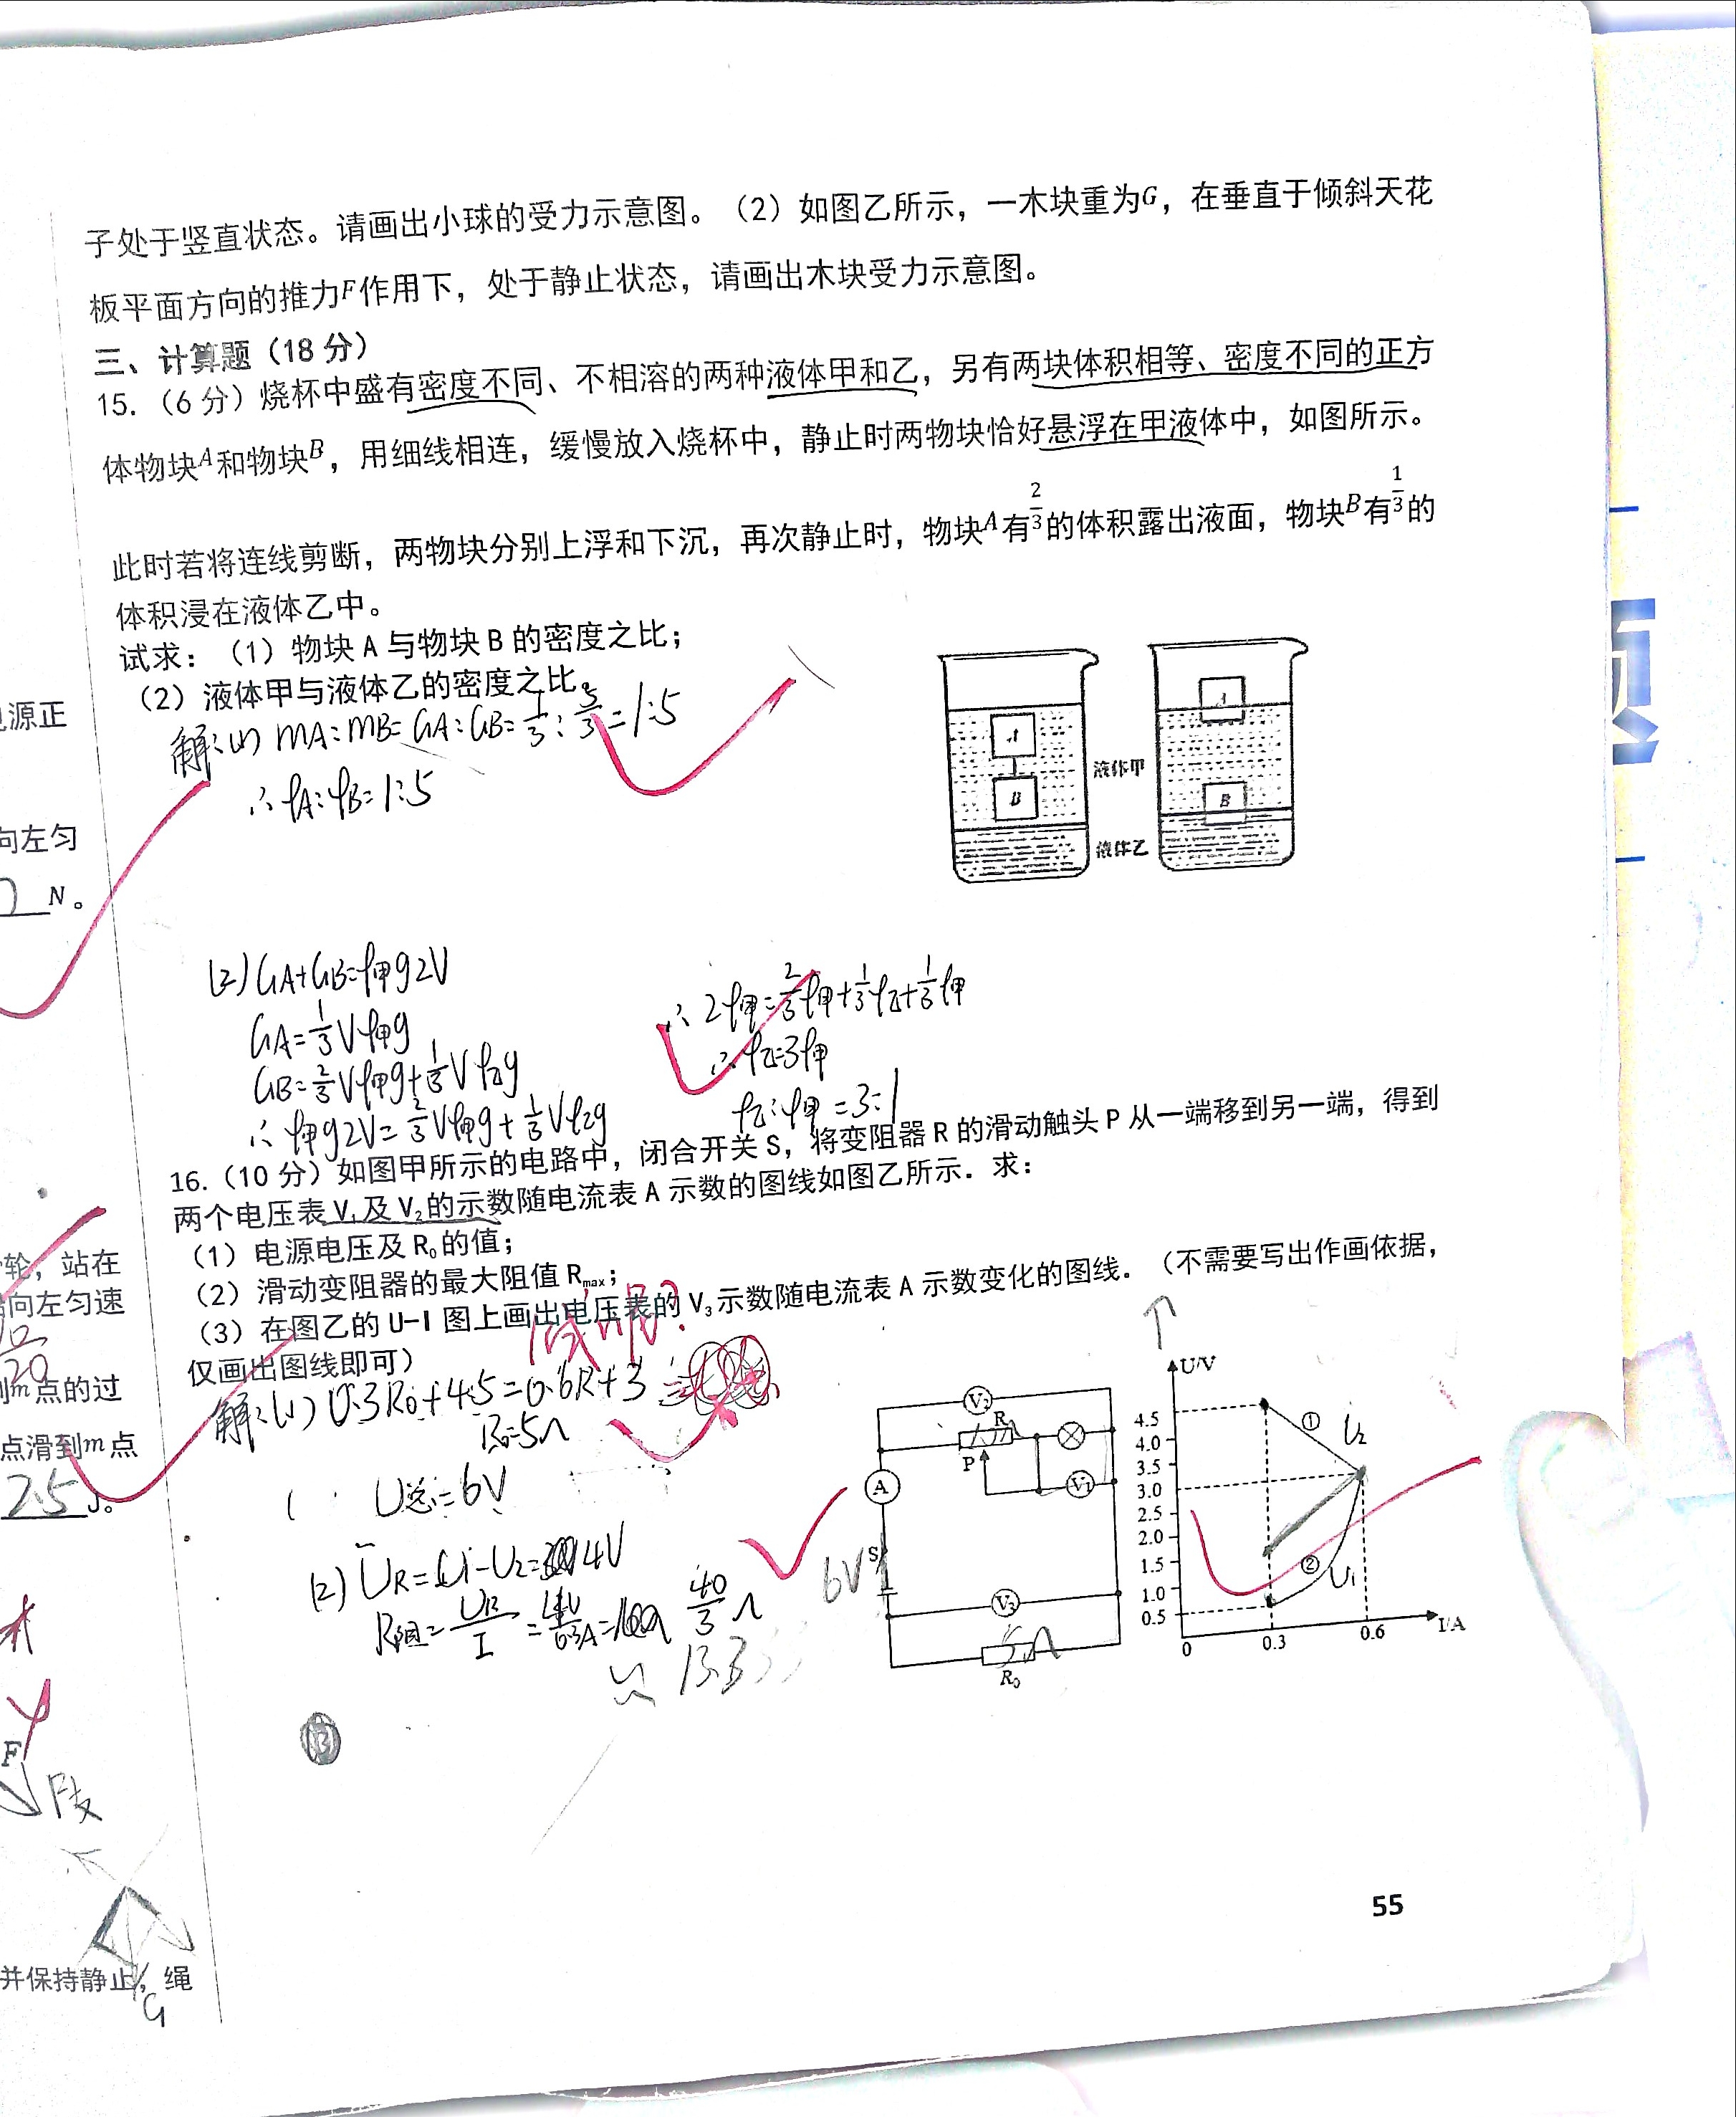 子处于竖直状态。请画出小球的受力示意图。（2）如图乙所示，一木块重为G，在垂直于倾斜天花
板平面方向的推力F作用下，处于静止状态，请画出木块受力示意图。
三、计算题（18 分）
15.（6 分）烧杯中盛有密度不同、不相溶的两种液体甲和乙，另有两块体积相等、密度不同的正方
体物块A和物块B，用细线相连，缓慢放入烧杯中，静止时两物块恰好悬浮在甲液体中，如图所示。
此时若将连线剪断，两物块分别上浮和下沉，再次静止时，物块A有2/3的体积露出液面，物块B有1/3的
体积浸在液体乙中。
试求：（1）物块 A 与物块 B 的密度之比；
（2）液体甲与液体乙的密度之比。
解:(1) mA:mB=GA:GB=1/3:5/3=1:5
∴ρA:ρB=1:5
A
B
液体甲
液体乙
A
B
(2)GA+GB=ρ甲g2V
GA=1/3Vρ甲g
GB=2/3Vρ甲g+1/3Vρ乙g
∴ρ甲g2V=2/3Vρ甲g+1/3Vρ乙g
∴2ρ甲=2/3ρ甲+1/3ρ乙+1/3ρ甲
∴ρ乙=3ρ甲
ρ乙:ρ甲=3:1
16.（10 分）如图甲所示的电路中，闭合开关 S，将变阻器 R 的滑动触头 P 从一端移到另一端，得到
两个电压表 V₁及 V₂的示数随电流表 A 示数的图线如图乙所示．求：
（1）电源电压及 R₀的值；
（2）滑动变阻器的最大阻值 Rmax；
（3）在图乙的 U-I 图上画出电压表的 V₃示数随电流表 A 示数变化的图线．（不需要写出作画依据，
仅画出图线即可）
解:(1) 0.3R₀+4.5=0.6R+3
R₀=5Ω
U总=6V
(2) UR=U1-U2=4V
R阻=UR/I=4V/0.3A=
40/3 Ω
≈13.3
V₂
R
P
A
V₁
S
6V
V₃
5Ω
R₀
U/V
4.5
4.0
3.5
3.0
2.5
2.0
1.5
1.0
0.5
0
0.3
0.6
I/A
①
U2
②
U1
55
电源正
向左匀
N。
轮，站在
向左匀速
20
到m点的过
点滑到m点
2.5 J。
F
F支
并保持静止，绳
G